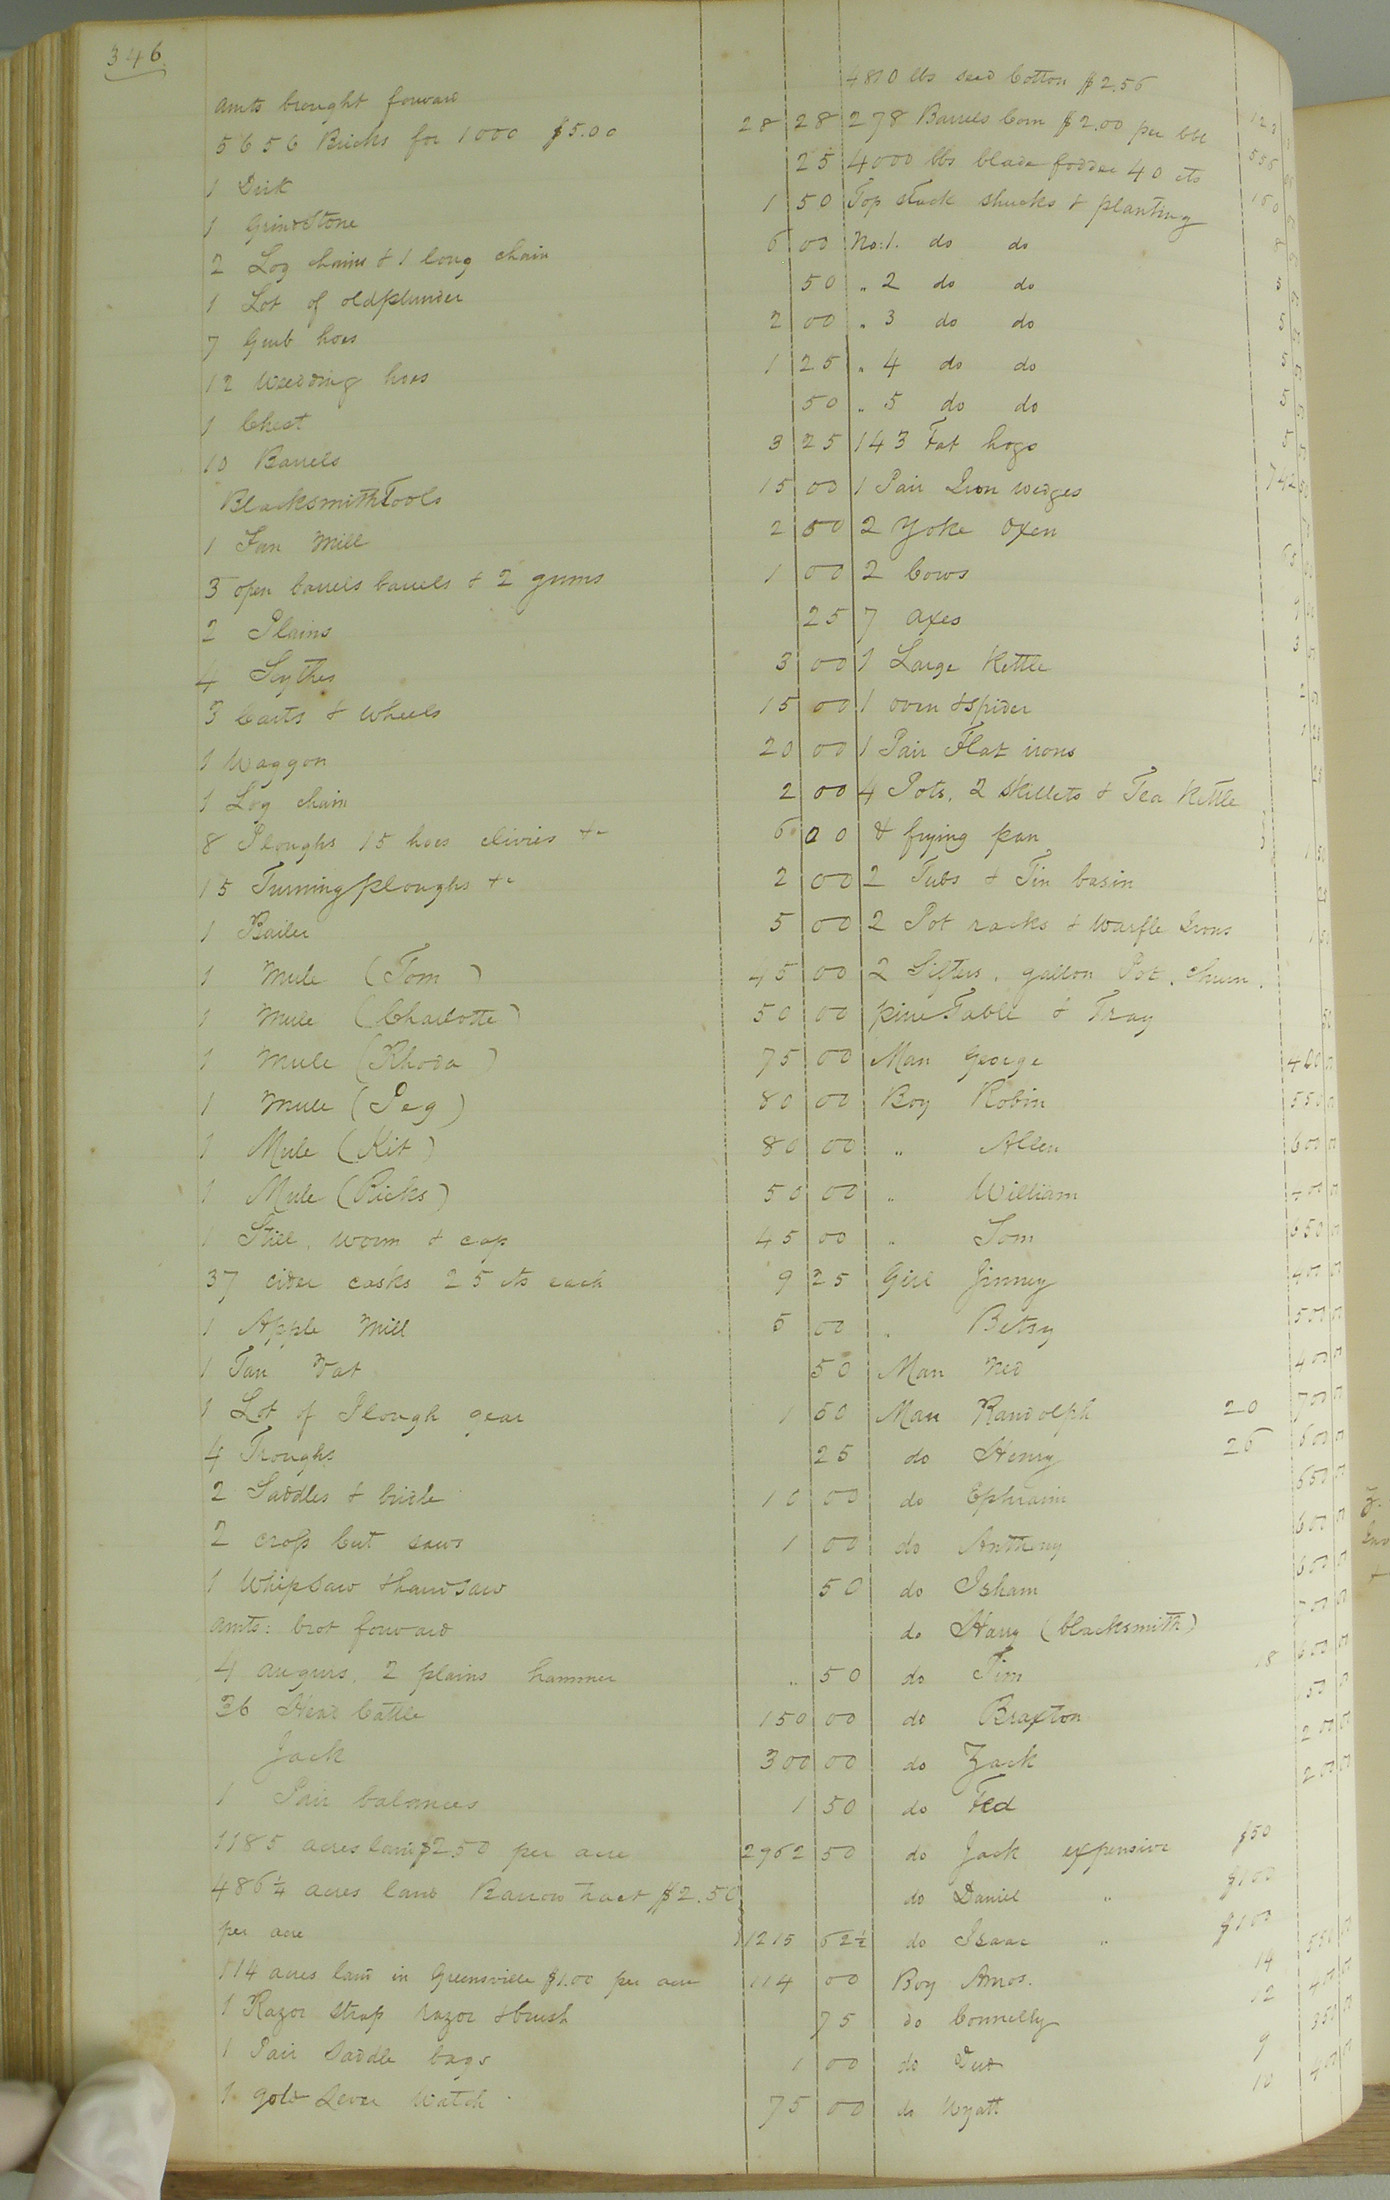 346
amts brought forward
5656 Bricks for 1000 $5.00 28 28
1 Dirk 25
1 Grindstone 1 50
2 Log chains & 1 long chain 6 00
1 Lot of old plunder 50
7 Grub hoes 2 00
12 Weeding hoes 1 25
1 Chest 50
10 Barrels 3 25
Blacksmith Tools 15 00
1 Fan Mill 2 50
3 open barrels barrels & 2 gums 1 00
2 Plains 25
4 Scythes 3 00
3 Carts & wheels 15 00
1 Waggon 20 00
1 Log chain 2 00
8 Ploughs 15 hoes clivies &c 6 00
15 Turning ploughs &c 2 00
1 Bailer 5 00
1 Mule (Tom) 45 00
1 Mule (Charlotte) 50 00
1 Mule (Rhoda) 75 00
1 Mule (Peg) 80 00
1 Mule (Kit) 80 00
1 Mule (Ricks) 50 00
1 Still, worm & cap 45 00
37 cider casks 25 cts each 9 25
1 Apple Mill 5 00
1 Tan Vat 50
1 Lot of Plough gear 1 50
4 Troughs 25
2 Saddles & bridle 10 00
2 cross Cut saws 1 00
1 Whipsaw & handsaw 50
amts: brot forward
4 augurs, 2 plains hammer " 50
36 Head Cattle 150 00
Jack 300 00
1 Pair balances 1 50
1185 acres land $2.50 per acre 2962 50
486 1/4 acres land Barrow tract $2.50
per acre 1215 62 1/2
114 acres land in Greensville $1.00 per acre 114 00
1 Razor strap razor & brush 75
1 Pair Saddle bags 1 00
1 gold Lever Watch 75 00
4810 lbs seed Cotton $2.56
278 Barrels Corn $2.00 per bbl 123
4000 lbs blade fodder 40 cts 556
Top stack shucks & planting 160
No: 1. do do 8
" 2 do do 5
" 3 do do 5
" 4 do do 5
" 5 do do 5
143 Fat hogs 5
1 Pair Iron wedges 742 50
2 Yoke Oxen
2 Cows 65
7 axes 9
1 Large Kettle 3
1 oven & spider 2
1 Pair Flat irons 1 25
4 Pots, 2 skillets & Tea Kettle 25
& frying pan
2 Tubs & Tin basin 1 50
2 Pot racks & Warfle Irons 25
2 Sifters, gallon Pot, churn, 1 50
pine Table & Tray 50
Man George 400
Boy Robin 550
" Allen 600
" William
" Tom 650
Girl Jinney 400
" Betsy 500
Man Ned 400
Man Randolph 20 700
do Henry 26 600
do Ephraim 650
do Anthony 600
do Isham 600
do Harry (blacksmith) 700
do Tim 18 600
do Braxton
do Zack 200
do Ted 200
do Jack expensive $50
do Daniel " $100
do Isaac " $100
Boy Amos. 14 550
do Connelly 12 400
do 9 350
do Wyatt 10 400